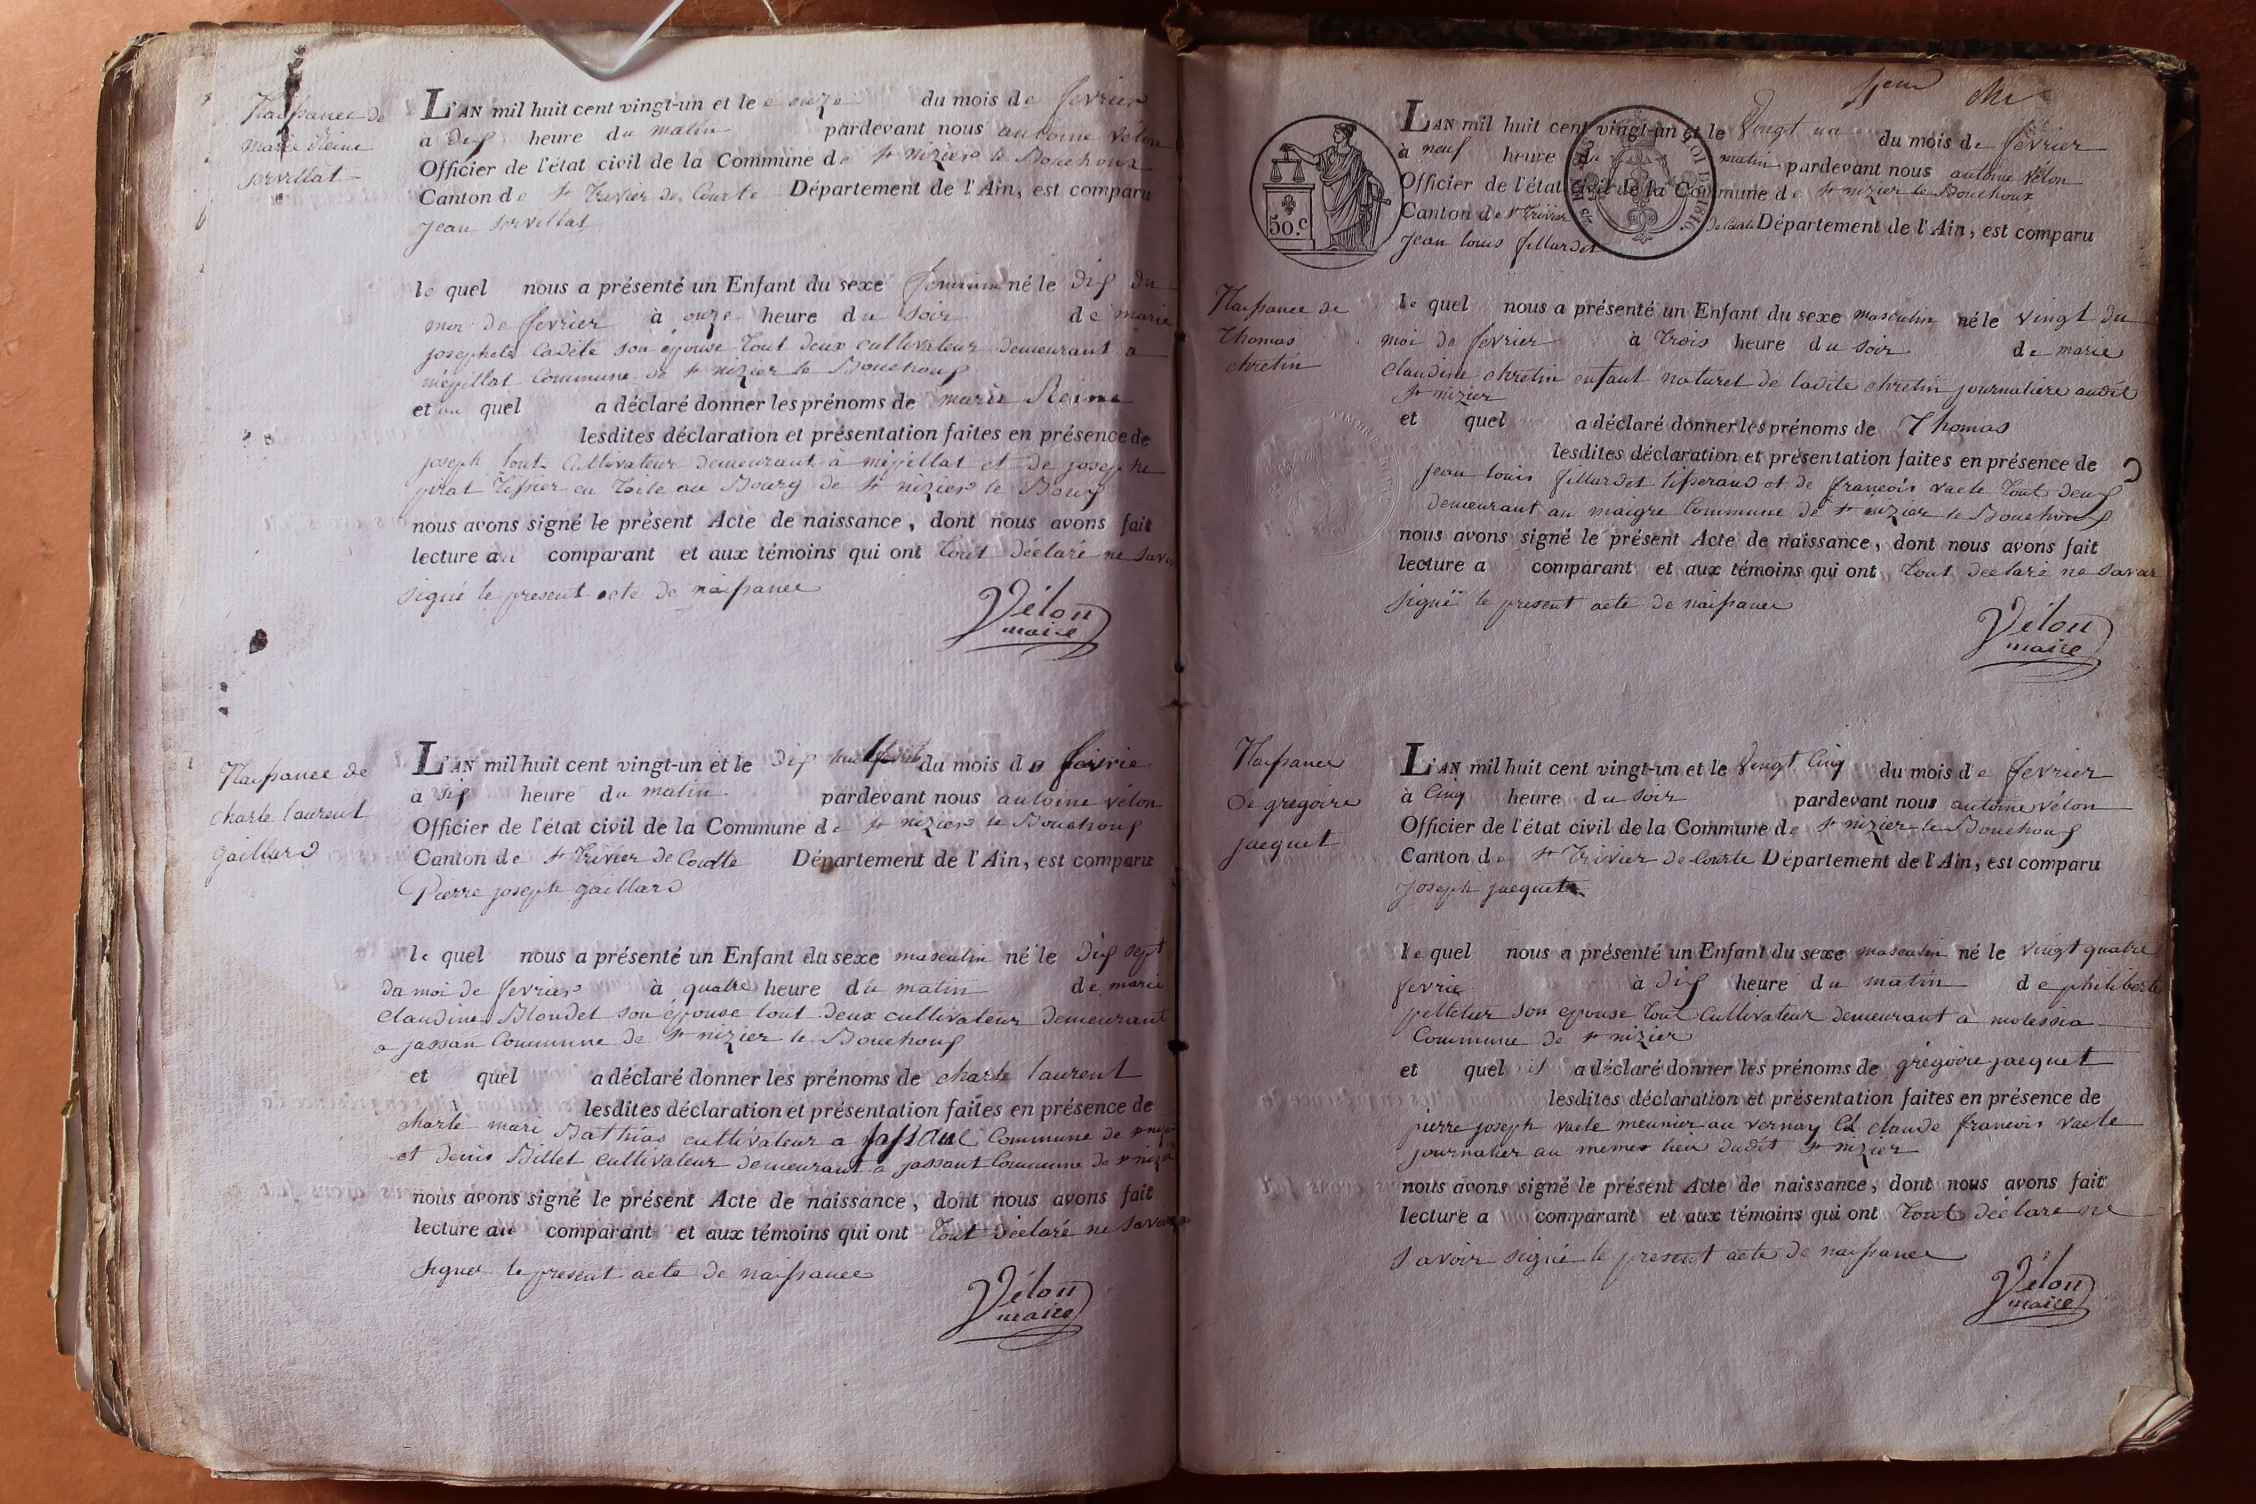 Naissance de
Marie Reine
Servillat
L'AN mil huit cent vingt-un et le onze du mois de fevrier
a dix heure du matin pardevant nous antoine vélon
Officier de l'état civil de la Commune de st nizier le Bouchoux
Canton de st Trivier de Courte Département de l'Ain, est comparu
jean servillat
le quel nous a présenté un Enfant du sexe feminin né le dix du
moi de fevrier à onze heure du soir de marie
josephete Cadète son épouse tout deux cultivateur demeurant a
mépillat Commune de st nizier le Bouchoux
et au quel a déclaré donner les prénoms de marie Reine
lesdites déclaration et présentation faites en présence de
joseph Cultivateur demeurant à mépillat et de josephe
pirat Tissier en toile au Bourg de st nizier le Boux
nous avons signé le présent Acte de naissance, dont nous avons fait
lecture au comparant et aux témoins qui ont tout déclaré ne savoir
signé le present acte de naissance
Vélon
maire
Naissance de
charle laurent
gaillard
L'AN mil huit cent vingt-un et le dix du mois de feivrie
a dix heure du matin pardevant nous antoine vélon
Officier de l'état civil de la Commune de st nizier le Bouchoux
Canton de st Trivier de Courtte Département de l'Ain, est comparu
Pierre joseph gaillard
le quel nous a présenté un Enfant du sexe masculin né le dix sept
du moi de fevrier à quatre heure du matin de marie
claudine Blondet son épouse tout deux cultivateur demeurant
a jassan Commune de st nizier le Bouchoux
et quel a déclaré donner les prénoms de charle laurent
lesdites déclaration et présentation faites en présence de
charle mari Bathias cultivateur a jassant Commune de st nizier
et denis Billet cultivateur demeurant a jassant Commune de st nizier
nous avons signé le présent Acte de naissance, dont nous avons fait
lecture au comparant et aux témoins qui ont tout déclaré ne savoir
signer le present acte de naissance
Vélon
maire
50.c
L'AN mil huit cent vingt-un et le Vingt un du mois de fevrier
à neuf heure du matin pardevant nous antoine vélon
Officier de l'état civil de la Commune de st nizier le Bouchoux
Canton de st Trivier de Courte Département de l'Ain, est comparu
jean louis fillardet
Naissance de
Thomas
chretin
le quel nous a présenté un Enfant du sexe masculin né le vingt du
moi de fevrier à trois heure du soir de marie
claudine chretin enfant naturel de ladite chretin journaliere audit
st nizier
et quel a déclaré donner les prénoms de Thomas
lesdites déclaration et présentation faites en présence de
jean louis fillardet tisserand et de francois vacle tout deux
demeurant au maigre Commune de st nizier le Bouchoux
nous avons signé le présent Acte de naissance, dont nous avons fait
lecture a comparant et aux témoins qui ont tout declaré ne savoir
signé le present acte de naissance
Vélon
maire
Naissance
De gregoire
jacquet
L'AN mil huit cent vingt-un et le Vingt Cinq du mois de fevrier
à Cinq heure du soir pardevant nous antoine vélon
Officier de l'état civil de la Commune de st nizier le Bouchoux
Canton de st Trivier de Courte Département de l'Ain, est comparu
joseph jacquet
le quel nous a présenté un Enfant du sexe masculin né le vingt quatre
fevrie à dix heure du matin de philiberte
pelletier son epouse tout cultivateur demeurant a molessia
Commune de st nizier
et quel il a déclaré donner les prénoms de grégoire jacquet
lesdites déclaration et présentation faites en présence de
pierre joseph vacle meunier au vernay Et claude francois vacle
journalier au memes lieu dudit st nizier
nous avons signé le présent Acte de naissance, dont nous avons fait
lecture a comparant et aux témoins qui ont tout déclaré ne
savoir signé le present acte de naissance
Vélon
maire